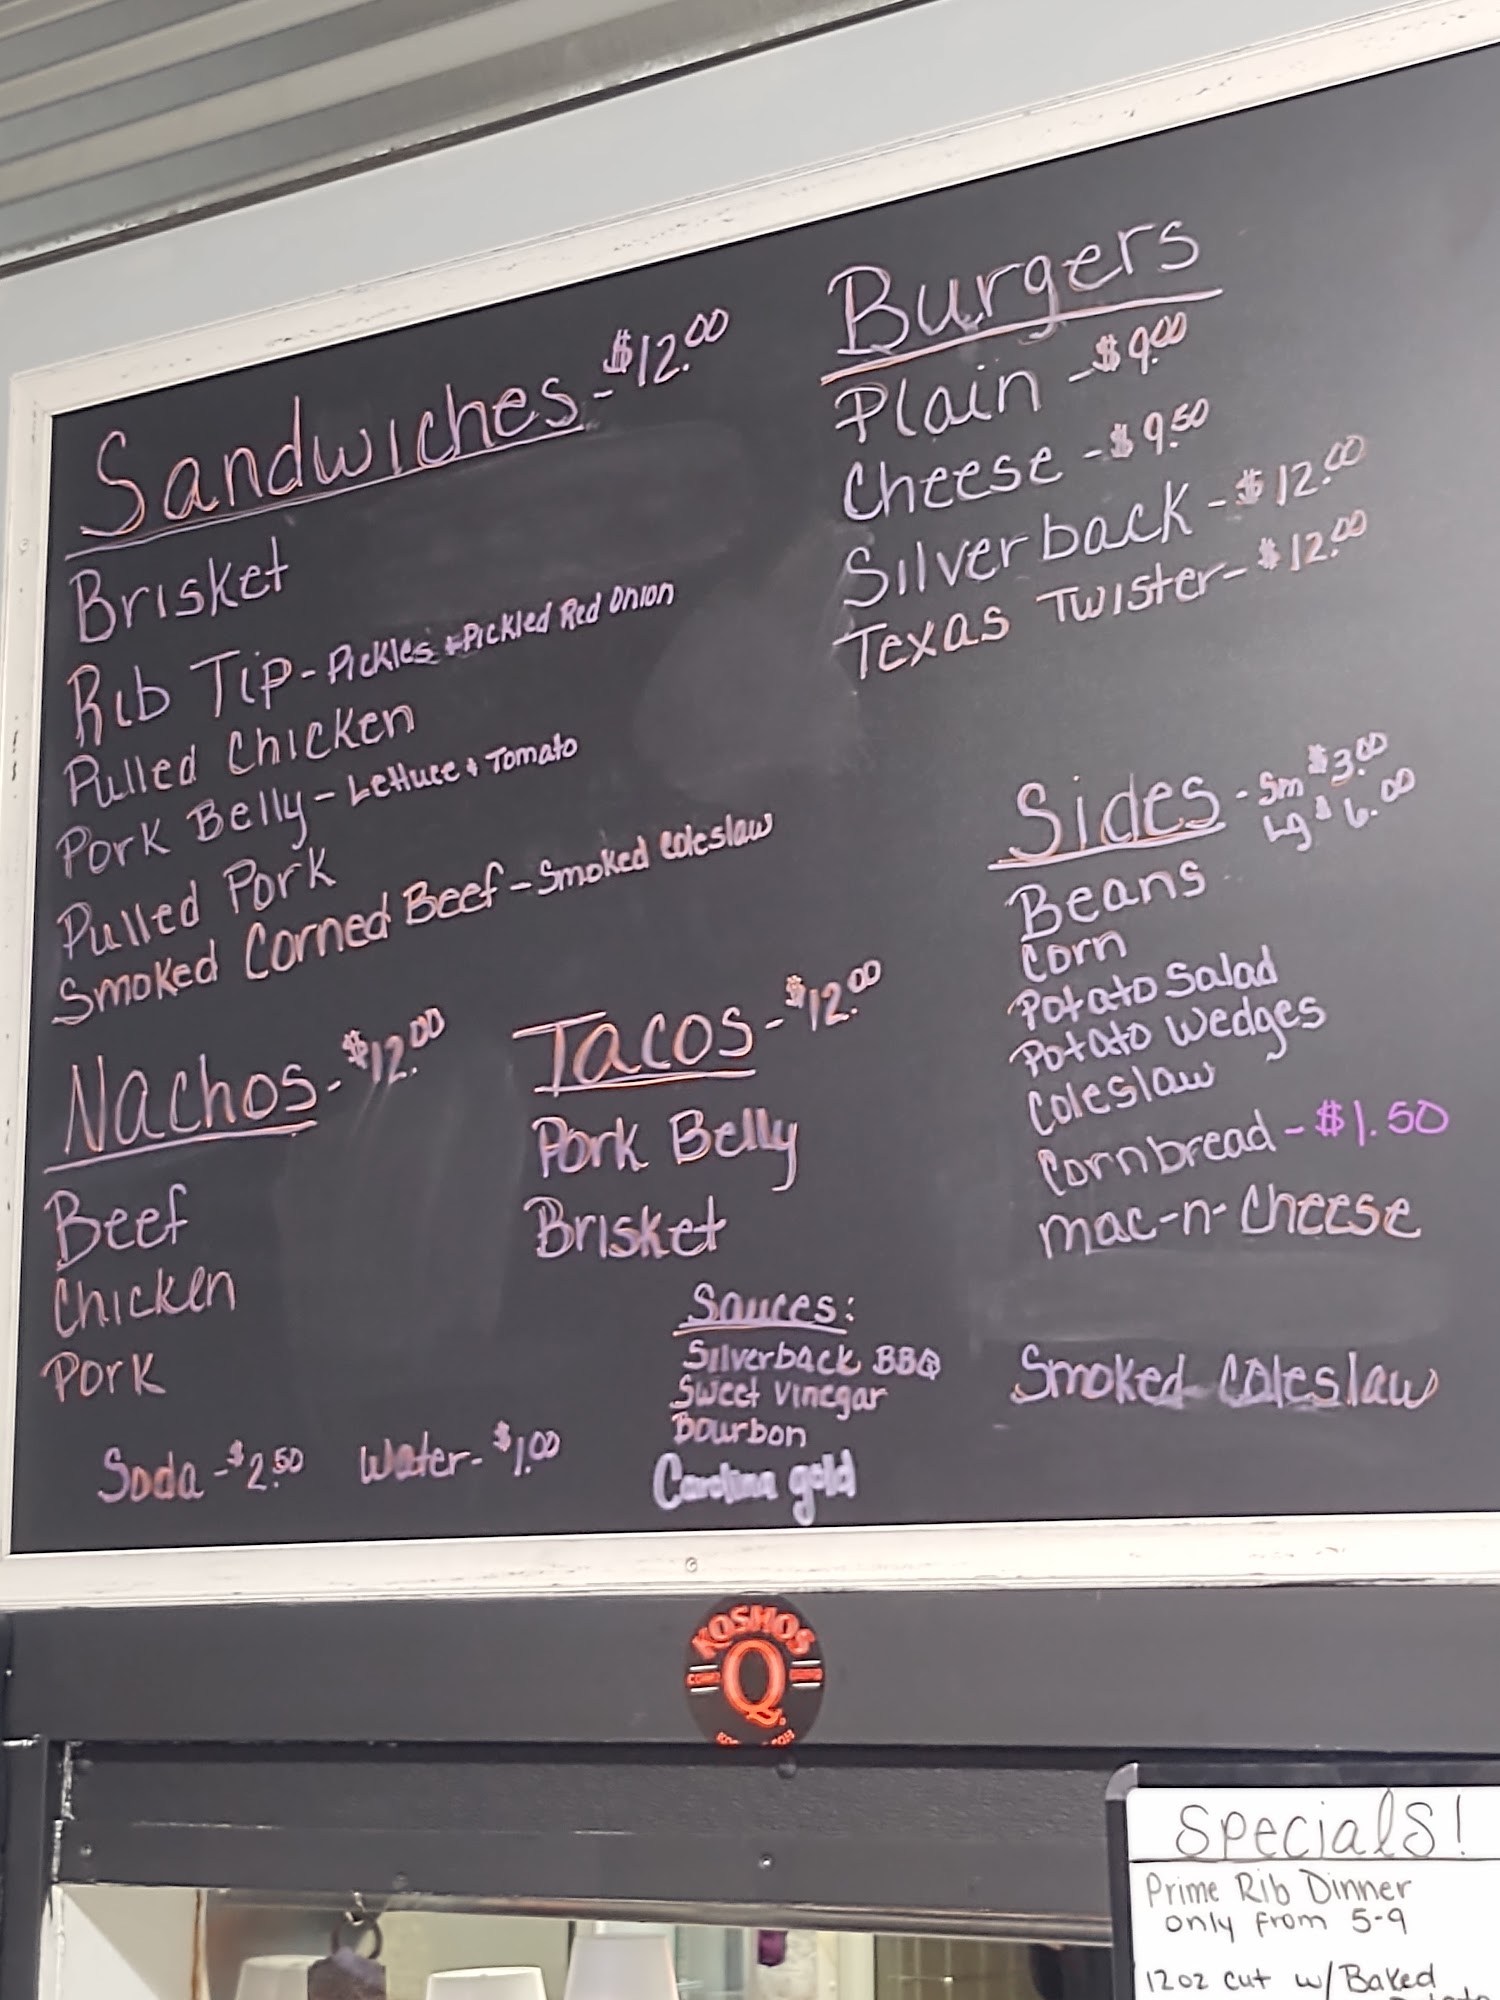 Sandwiches - $12.00
Brisket
Rib Tip - Pickles + Pickled Red Onion
Pulled Chicken
Pork Belly - Lettuce + Tomato
Pulled Pork
Smoked Corned Beef - Smoked Coleslaw
Burgers
Plain - $9.00
Cheese - $9.50
Silverback - $12.00
Texas Twister - $12.00
Nachos - $12.00
Beef
Chicken
Pork
Tacos - $12.00
Pork Belly
Brisket
Sides - Sm $3.00
Lg $6.00
Beans
Corn
Potato Salad
Potato Wedges
Coleslaw
Cornbread - $1.50
Mac-n-Cheese
Smoked Coleslaw
Sauces:
Silverback BBQ
Sweet Vinegar
Bourbon
Carolina gold
Soda - $2.50 Water - $1.00
KOSMOS
Q
Specials!
Prime Rib Dinner
only from 5-9
12oz cut w/ Baked